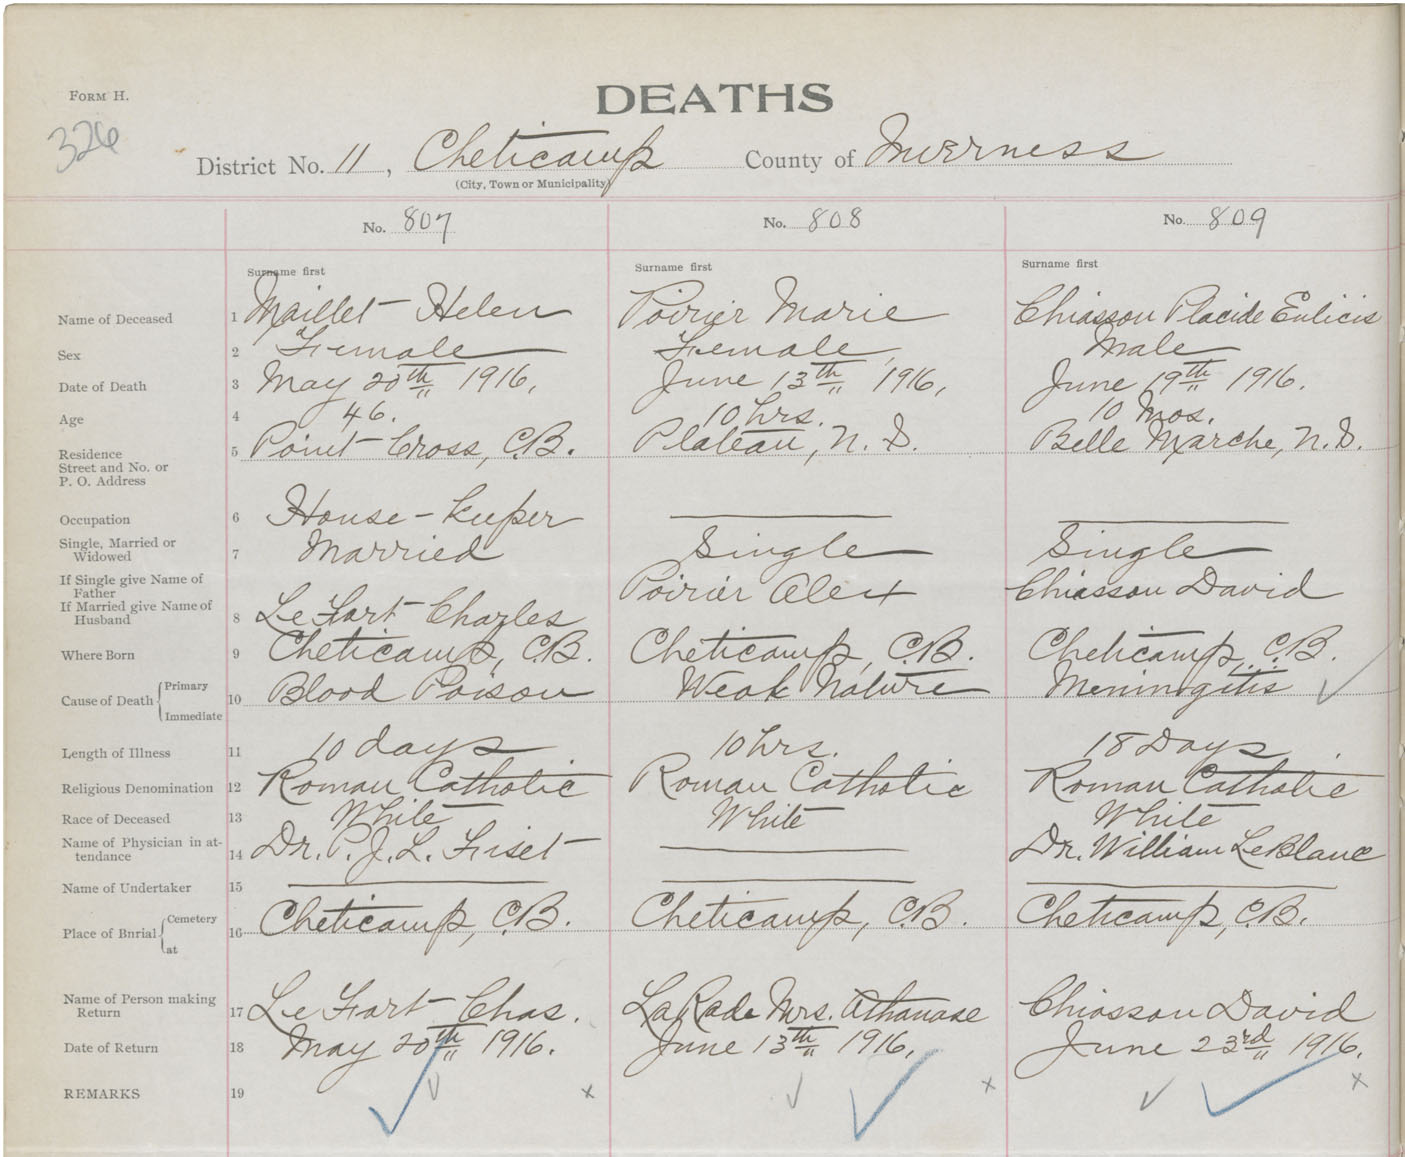 FORM H.
DEATHS
326
District No. 11, Cheticamp County of Inverness
(City, Town or Municipality)
No. 807 No. 808 No. 809
Surname first Surname first Surname first
Name of Deceased 1 Maillet Helen Poirier Marie Chiasson Placide Eulicis
Sex 2 Female Female, Male
Date of Death 3 May 20th 1916, June 13th 1916, June 19th 1916.
Age 4 46. 10 hrs. 10 Mos.
Residence 5 Point Cross, C.B. Plateau, N.S. Belle Marche, N.S.
Street and No. or
P. O. Address
Occupation 6 House-keeper
Single, Married or
Widowed 7 Married Single Single
If Single give Name of
Father Poirier Alex Chiasson David
If Married give Name of
Husband 8 Le Fort Charles
Where Born 9 Cheticamp, C.B. Cheticamp, C.B. Cheticamp, C.B.
Cause of Death Primary
Immediate 10 Blood Poison Weak Nature Meninogitis
Length of Illness 11 10 days 10 hrs. 18 Days
Religious Denomination 12 Roman Catholic Roman Catholic Roman Catholic
Race of Deceased 13 White White White
Name of Physician in at-
tendance 14 Dr. P.J.L. Fiset Dr. William LeBlanc
Name of Undertaker 15
Place of Bnrial Cemetery
at 16 Cheticamp, C.B. Cheticamp, C.B. Cheticamp, C.B.
Name of Person making
Return 17 Le Fort Chas. LaRade Mrs. Athanase Chiasson David
Date of Return 18 May 20th 1916. June 13th 1916, June 23rd 1916.
REMARKS 19 x x x